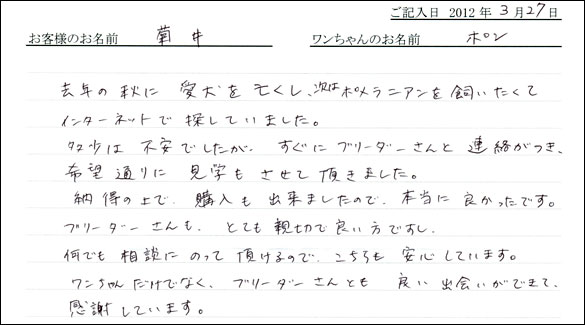 ご記入日 2012 年 3 月 27 日
お客様のお名前 菊井 ワンちゃんのお名前 ポン
去年の秋に 愛犬を亡くし、次はポメラニアンを飼いたくて
インターネットで探していました。
多少は不安でしたが、すぐにブリーダーさんと連絡がつき、
希望通りに見学もさせて頂きました。
納得の上で、購入も出来ましたので、本当に良かったです。
ブリーダーさんも、とても親切で良い方ですし、
何でも相談にのって頂けるので、こちらも安心しています。
ワンちゃんだけでなく、ブリーダーさんとも良い出会いができて、
感謝しています。